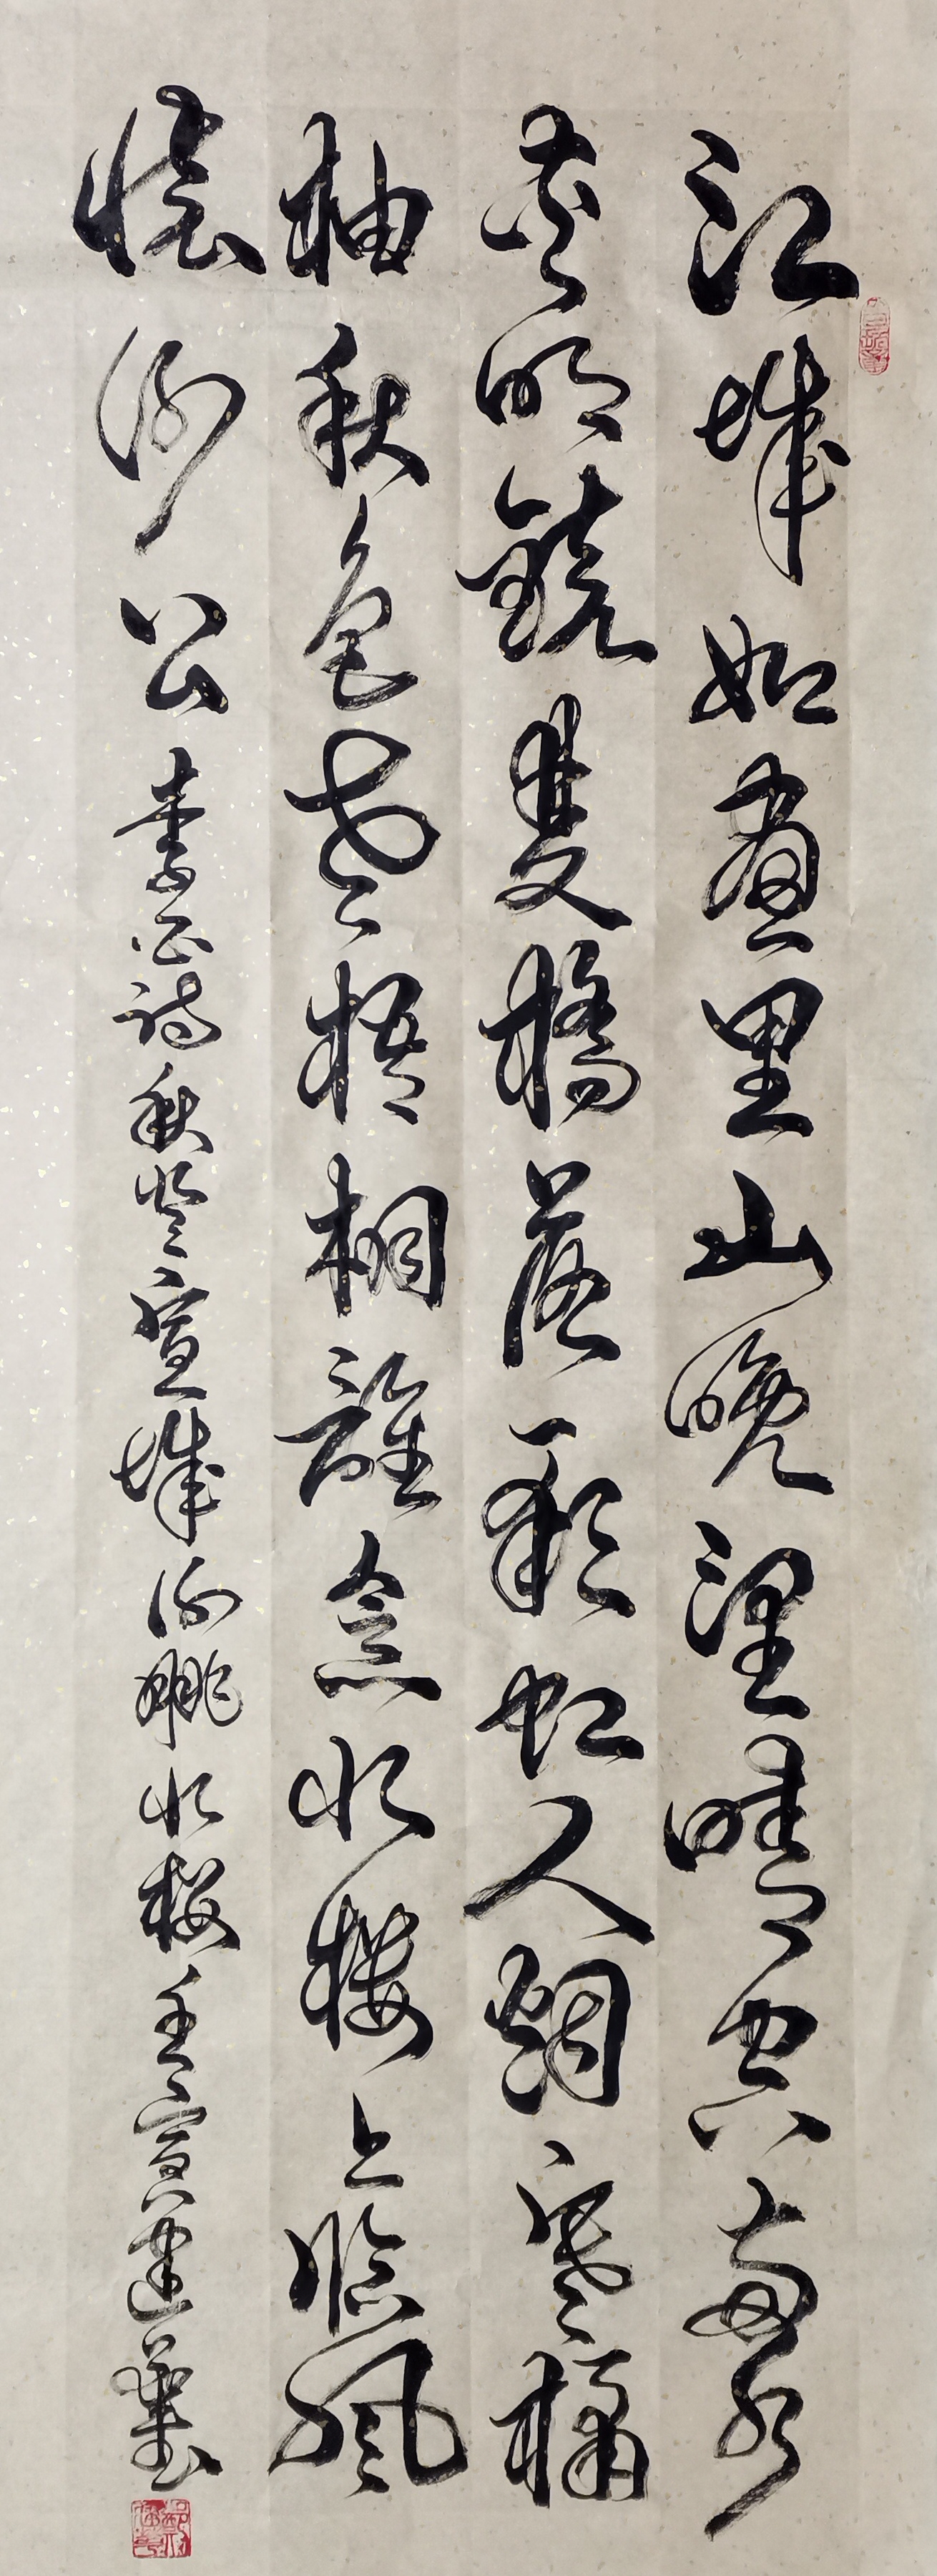 江城如画里山晚望晴空两水
夹明镜双桥落彩虹人烟寒橘
柚秋色老梧桐谁念北楼上临风
怀谢公 李白诗秋登宣城谢朓北楼 壬寅建